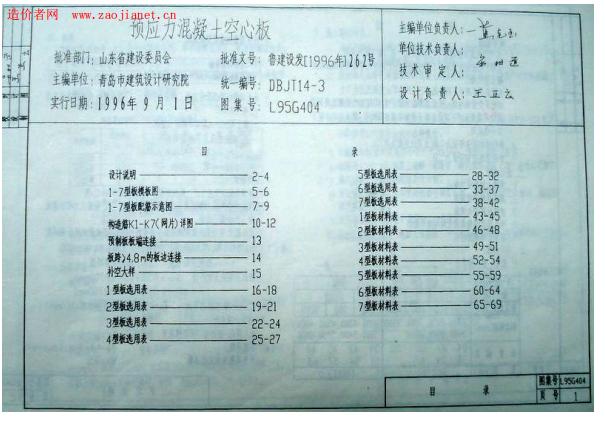 造价者网
www.zaojianet.cn
预应力混凝土空心板
批准部门: 山东省建设委员会
批准文号: 鲁建设发[1996年]262号
主编单位: 青岛市建筑设计研究院
统一编号: DBJT14-3
实行日期: 1996年9月1日
图集号: L95G404
主编单位负责人:
单位技术负责人:
技术审定人:
设计负责人: 王正云
目 录
设计说明 2-4
1-7型板模板图 5-6
1-7型板配筋示意图 7-9
构造筋K1-K7(网片)详图 10-12
预制板板端连接 13
板跨≥4.8m的板边连接 14
补空大样 15
1型板选用表 16-18
2型板选用表 19-21
3型板选用表 22-24
4型板选用表 25-27
5型板选用表 28-32
6型板选用表 33-37
7型板选用表 38-42
1型板材料表 43-45
2型板材料表 46-48
3型板材料表 49-51
4型板材料表 52-54
5型板材料表 55-59
6型板材料表 60-64
7型板材料表 65-69
目 录
图集号 L95G404
页号 1